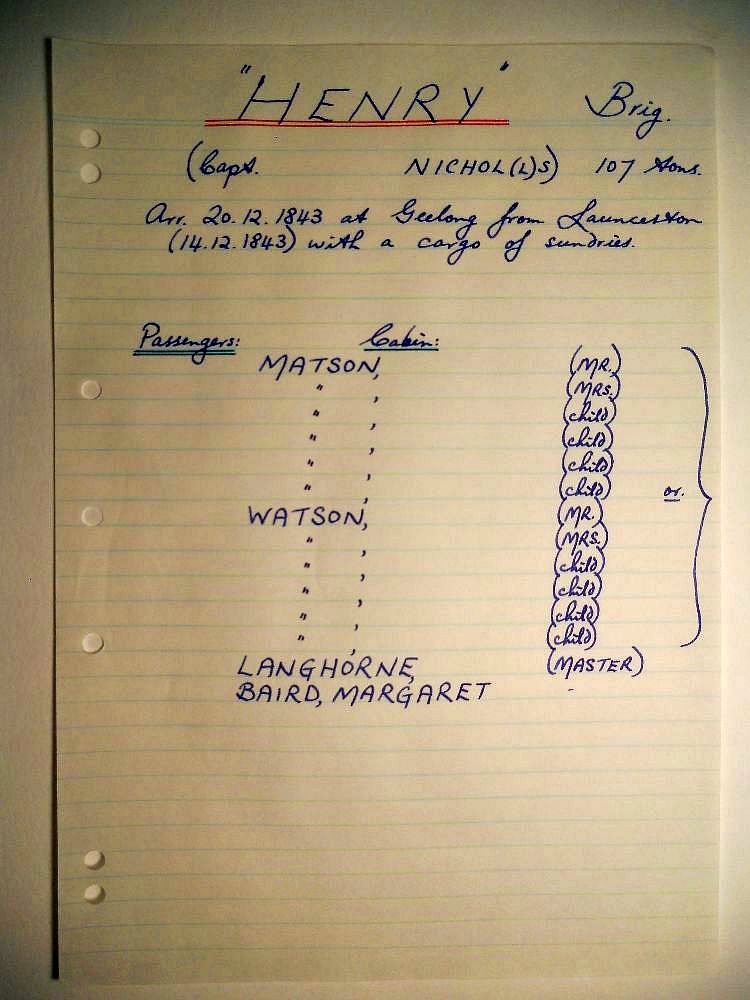 "HENRY" Brig.
(Capt. NICHOL(L)S) 107 tons.
Arr. 20.12.1843 at Geelong from Launceston
(14.12.1843) with a cargo of sundries.
Passengers: Cabin:
MATSON, (MR.)
" , (MRS.)
" , (child)
" , (child)
" , (child)
" , (child) or.
WATSON, (MR.)
" , (MRS.)
" , (child)
" , (child)
" , (child)
" , (child)
LANGHORNE, (MASTER)
BAIRD, MARGARET -